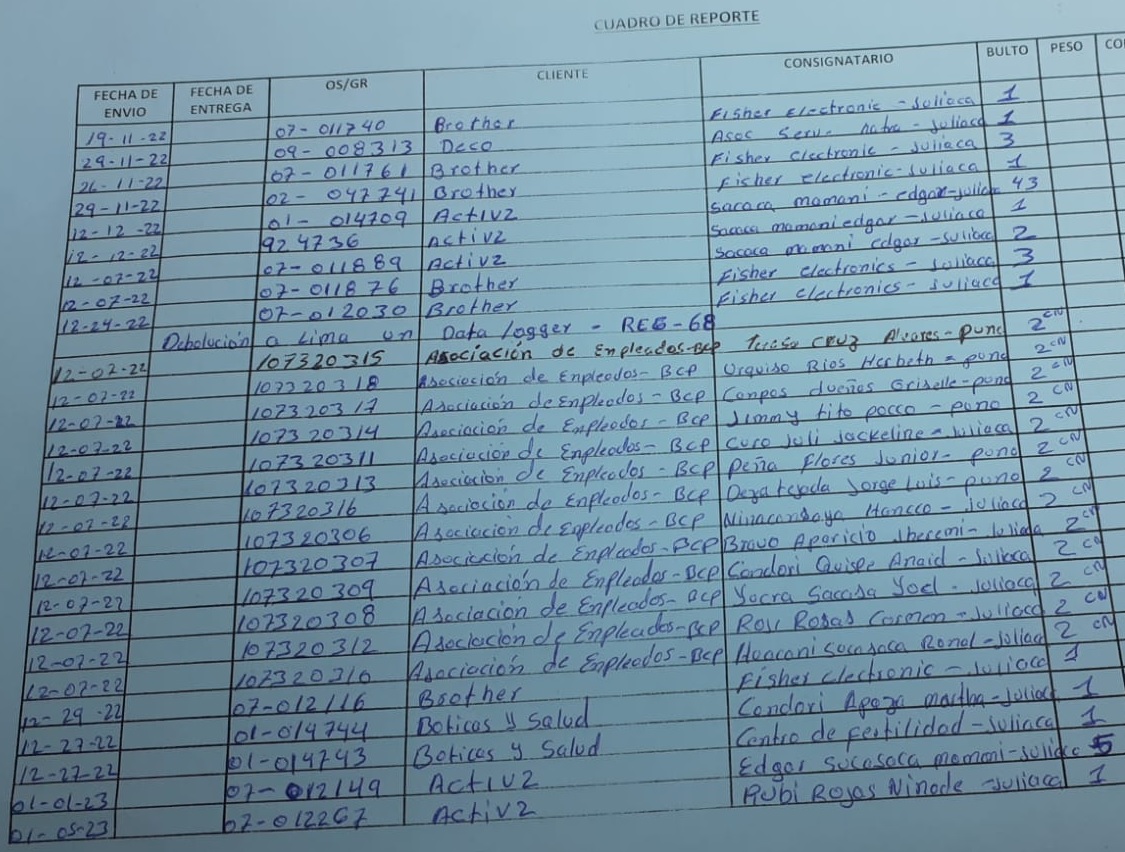 CUADRO DE REPORTE
FECHA DE ENVIO FECHA DE ENTREGA OS/GR CLIENTE CONSIGNATARIO BULTO PESO CO
19-11-22 07-011740 Brother Fisher Electronic - Juliaca 1
29-11-22 09-008313 Deco Asoc Serv. - Juliaca 1
26-11-22 07-011761 Brother Fisher electronic - Juliaca 3
29-11-22 02-047741 Brother Fisher electronic - Juliaca 1
12-12-22 01-014709 Activ2 Sacaca mamani - edgar - Juliaca 43
12-12-22 924736 Activ2 Sacaca mamani edgar - Juliaca 1
12-07-22 07-011889 Activ2 Sacaca mamani edgar - Juliaca 2
12-07-22 07-011876 Brother Fisher electronics - Juliaca 3
12-24-22 07-012030 Brother Fisher electronics - Juliaca 1
Debolución a Lima un Data logger - REG-68
12-07-22 107320315 Asociación de Empleados - BCP Teresa Cruz Alvares - puno 2 CN
12-07-22 107320318 Asociación de Empleados - BCP Urquiso Rios Herbeth - puno 2 CN
12-07-22 107320317 Asociación de Empleados - BCP Campos dueñas Griselle - puno 2 CN
12-07-22 107320314 Asociación de Empleados - BCP Jimmy tito pacco - puno 2 CN
12-07-22 107320311 Asociación de Empleados - BCP Curo Juli Jackeline - Juliaca 2 CN
12-07-22 107320313 Asociación de Empleados - BCP Peña Flores Junior - puno 2 CN
12-07-22 107320316 Asociación de Empleados - BCP Deza tejada Jorge Luis - puno 2 CN
12-07-22 107320306 Asociación de Empleados - BCP Hancco - Juliaca 2 CN
12-07-22 107320307 Asociación de Empleados - BCP Bravo Aparicio - Juliaca 2 CN
12-07-22 107320309 Asociación de Empleados - BCP Condori Quispe Anaid - Juliaca 2 CN
12-07-22 107320308 Asociación de Empleados - BCP Yocra Yoel - Juliaca 2 CN
12-07-22 107320312 Asociación de Empleados - BCP Rosas Carmen - Juliaca 2 CN
12-07-22 107320310 Asociación de Empleados - BCP Huacani Ronal - Juliaca 2 CN
12-29-22 07-012116 Brother Fisher electronic - Juliaca 1
12-27-22 01-014744 Boticas y Salud Condori Apaza martha - Juliaca 1
12-27-22 01-014743 Boticas y Salud Centro de fertilidad - Juliaca 1
01-01-23 07-012149 Activ2 Edgar Sucasaca mamani - Juliaca 5
01-05-23 07-012267 Activ2 Rubi Rojas Ninade - Juliaca 1